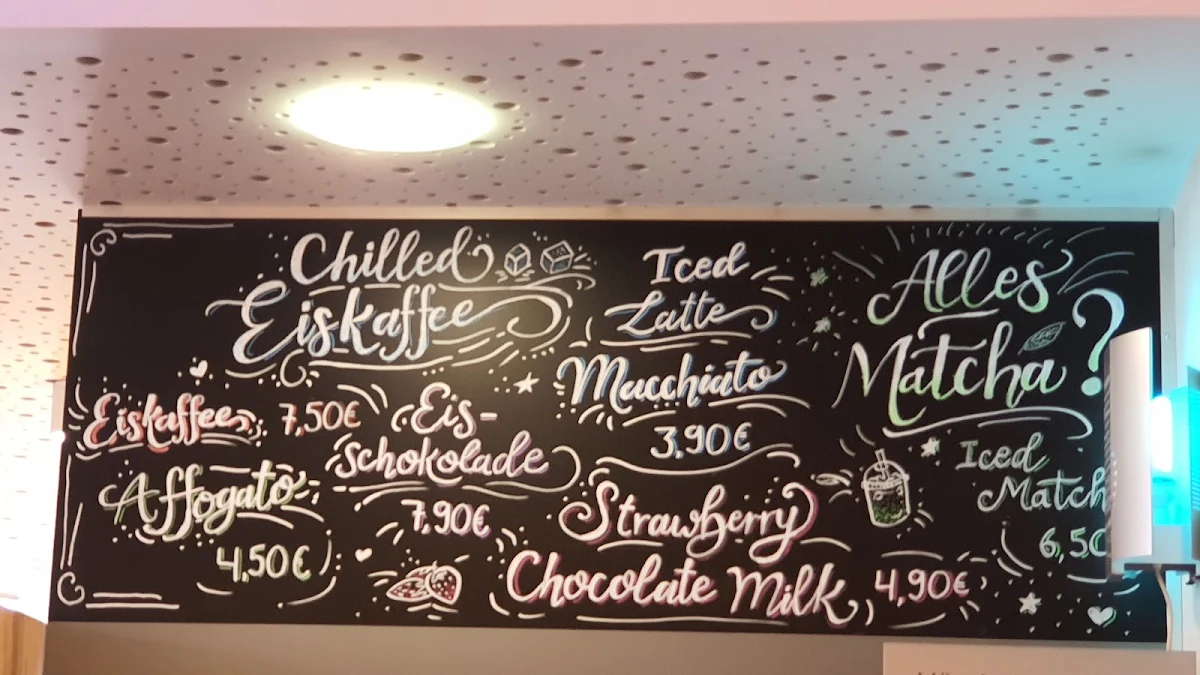 Chilled
Eiskaffee
Eiskaffee 7,50€
Affogato
4,50€
Eis-
Schokolade
7,90€
Iced
Latte
Macchiato
3,90€
Strawberry
Chocolate Milk 4,90€
Alles
Matcha?
Iced
Match
6,50